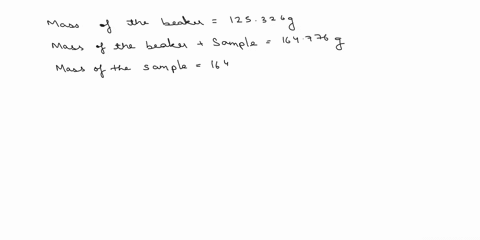 Mass of the beaker = 125.326g
Mass of the beaker + Sample = 164.776 g
Mass of the sample = 164